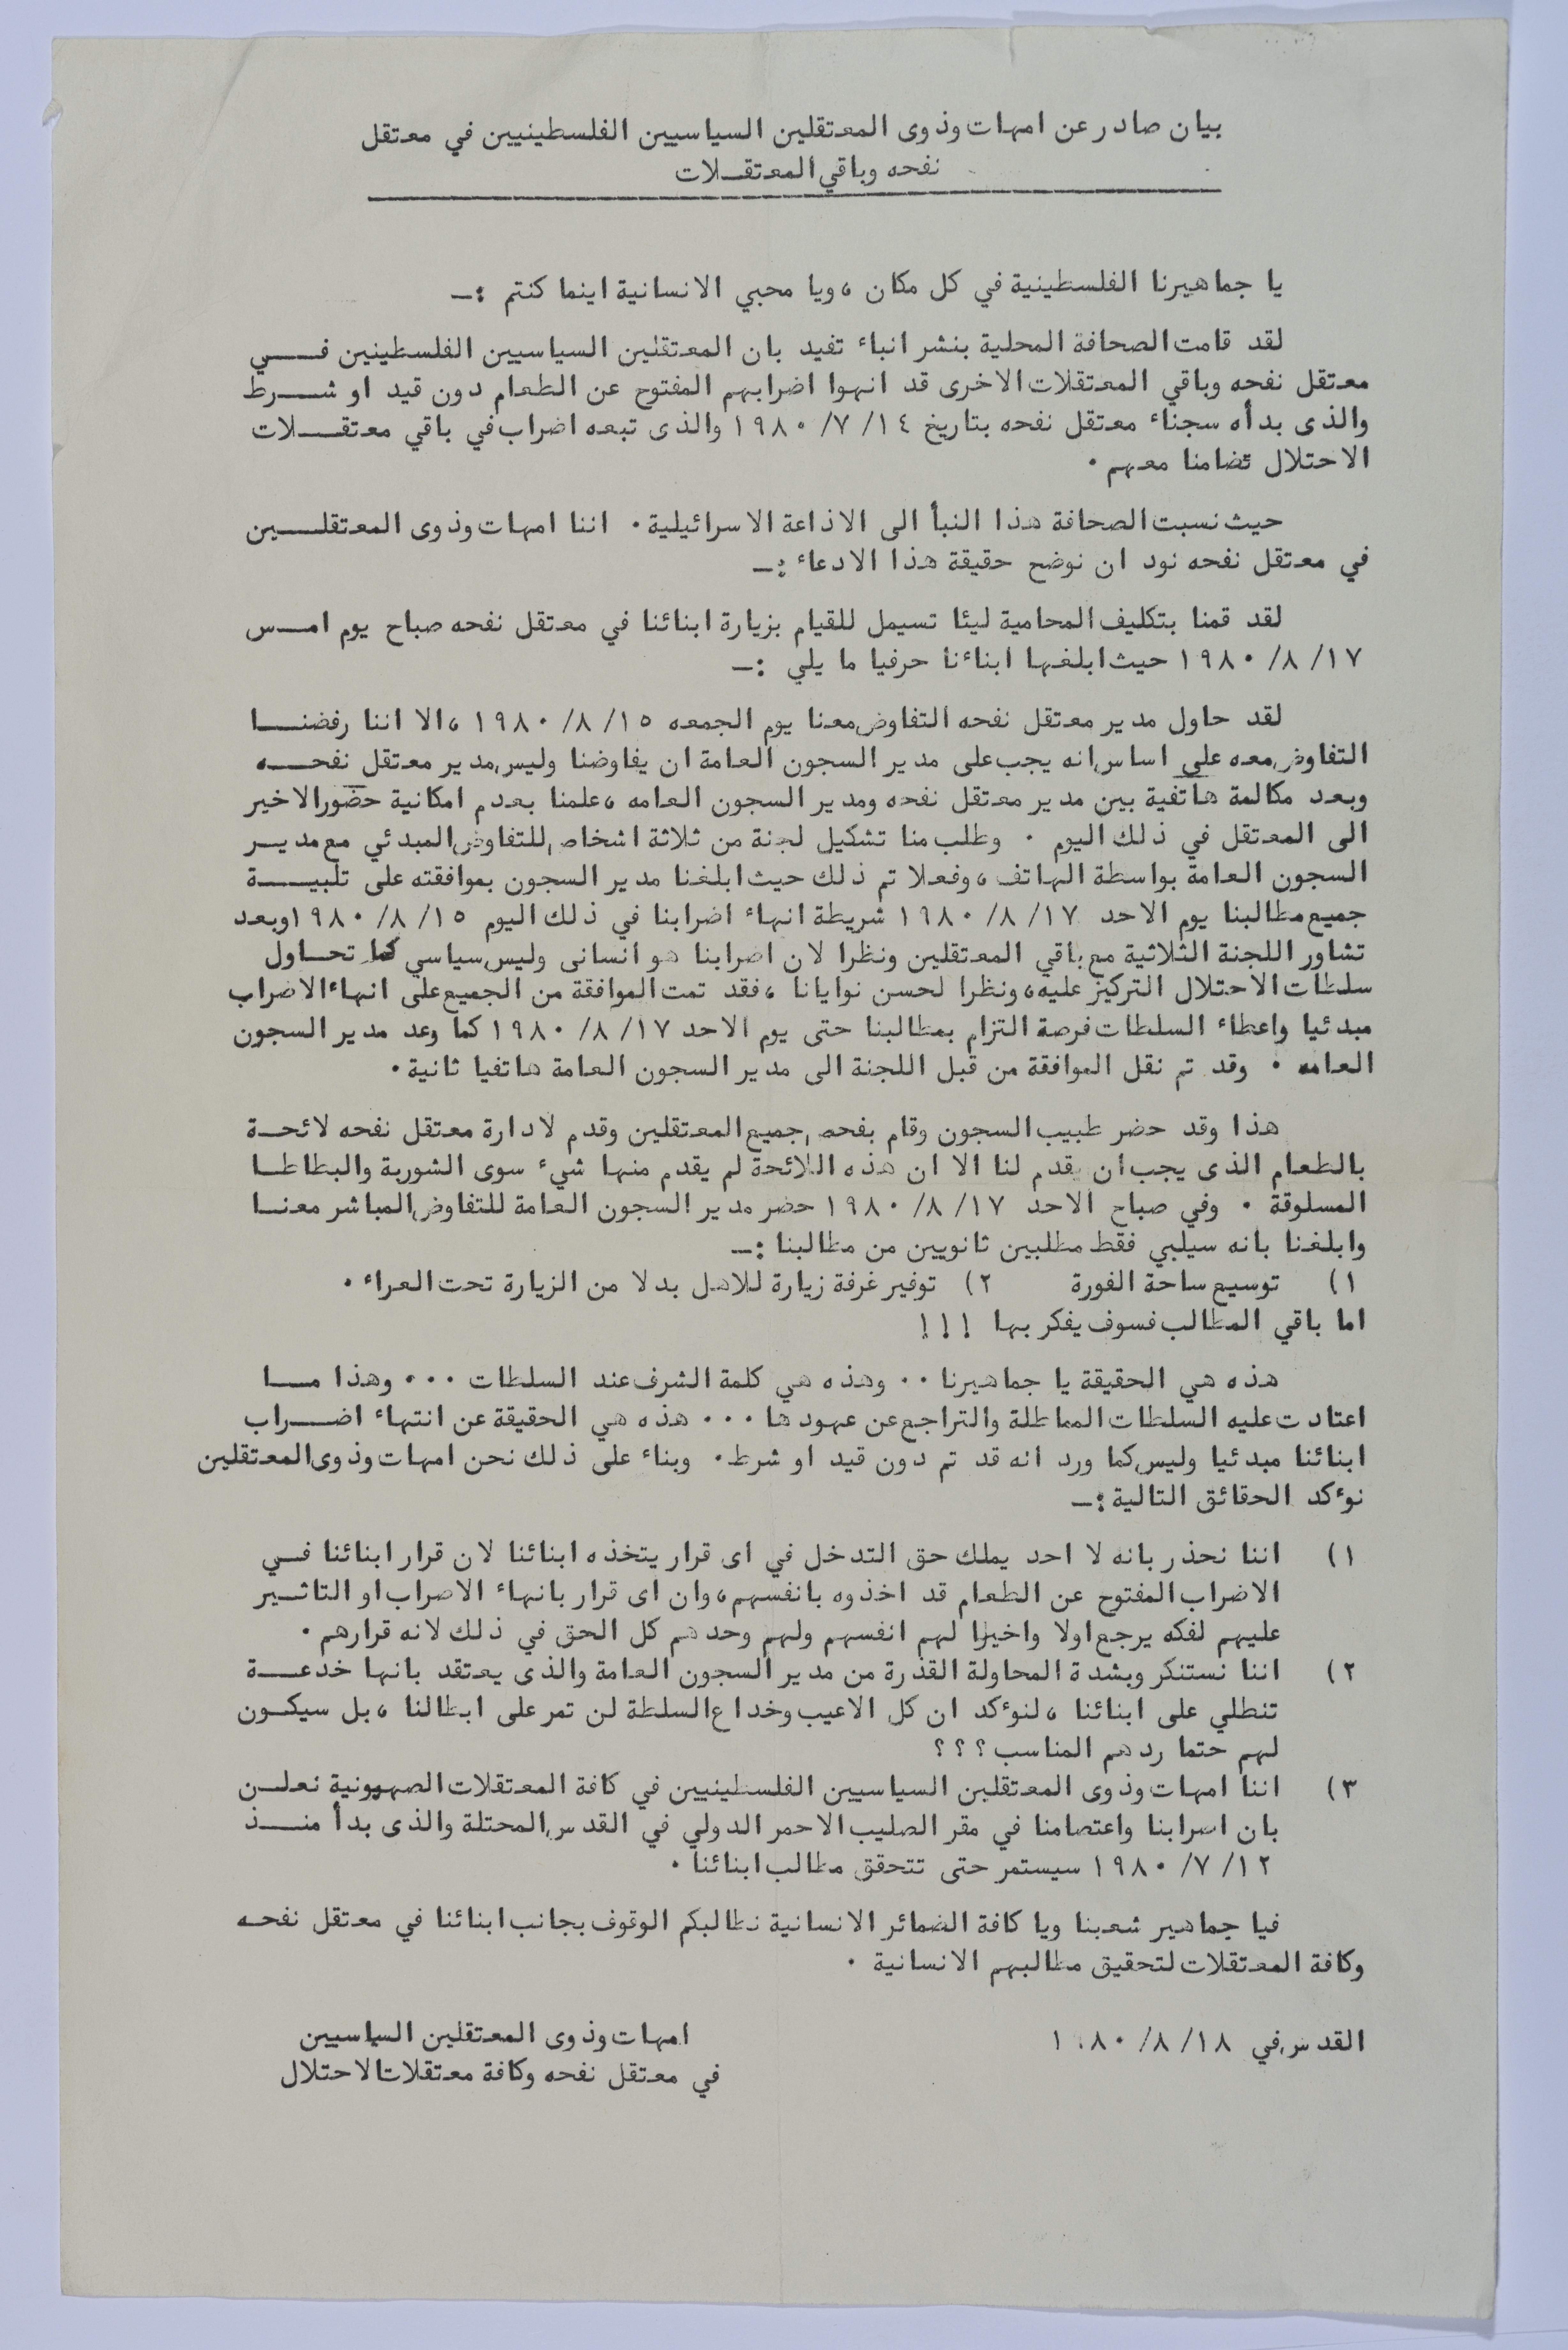 بيان صادر عن امهات وذوى المعتقلين السياسيين الفلسطينيين في معتقل
نفحه وباقي المعتقـلات
يا جماهيرنا الفلسطينية في كل مكان ، ويا محبي الانسانية اينما كنتم :ـ
لقد قامت الصحافة المحلية بنشر انباء تفيد بان المعتقلين السياسيين الفلسطينين فـــي
معتقل نفحه وباقي المعتقلات الاخرى قد انهوا اضرابهم المفتوح عن الطعام دون قيد او شــرط
والذى بدأه سجناء معتقل نفحه بتاريخ ١٤ /٧ /١٩٨٠ والذى تبعه اضراب في باقي معتقــلات
الاحتلال تضامنا معهم .
حيث نسبت الصحافة هذا النبأ الى الاذاعة الاسرائيلية . اننا امهات وذوى المعتقلــين
في معتقل نفحه نود ان نوضح حقيقة هذا الادعاء :ـ
لقد قمنا بتكليف المحامية ليئا تسيمل للقيام بزيارة ابنائنا في معتقل نفحه صباح يوم امـس
١٧ /٨ /١٩٨٠ حيث ابلغها ابناءنا حرفيا ما يلي :ـ
لقد حاول مدير معتقل نفحه التفاوض معنا يوم الجمعه ١٥ /٨ /١٩٨٠ ، الا اننا رفضنــا
التفاوض معه على اساس انه يجب على مدير السجون العامة ان يفاوضنا وليس مدير معتقل نفحــه
وبعد مكالمة هاتفية بين مدير معتقل نفحه ومدير السجون العامه ، علمنا بعدم امكانية حضور الاخير
الى المعتقل في ذلك اليوم . وطلب منا تشكيل لجنة من ثلاثة اشخاص للتفاوض المبدئي مع مديــر
السجون العامة بواسطة الهاتف ، وفعلا تم ذلك حيث ابلغنا مدير السجون بموافقته على تلبيــة
جميع مطالبنا يوم الاحد ١٧ /٨ /١٩٨٠ شريطة انهاء اضرابنا في ذلك اليوم ١٥ /٨ /١٩٨٠ وبعد
تشاور اللجنة الثلاثية مع باقي المعتقلين ونظرا لان اضرابنا هو انسانى وليس سياسي كما تحـاول
سلطات الاحتلال التركيز عليه ، ونظرا لحسن نوايانا ، فقد تمت الموافقة من الجميع على انهاء الاضراب
مبدئيا واعطاء السلطات فرصة التزام بمطالبنا حتى يوم الاحد ١٧ /٨ /١٩٨٠ كما وعد مدير السجون
العامه . وقد تم نقل الموافقة من قبل اللجنة الى مدير السجون العامة هاتفيا ثانية .
هذا وقد حضر طبيب السجون وقام بفحص جميع المعتقلين وقدم لادارة معتقل نفحه لائحـة
بالطعام الذى يجب ان يقدم لنا الا ان هذه اللائحة لم يقدم منها شيء سوى الشوربة والبطاطــا
المسلوقة . وفي صباح الاحد ١٧ /٨ /١٩٨٠ حضر مدير السجون العامة للتفاوض المباشر معنــا
وابلغنا بانه سيلبي فقط مطلبين ثانويين من مطالبنا :ـ
١) توسيع ساحة الفورة ٢) توفير غرفة زيارة للاهل بدلا من الزيارة تحت العراء .
اما باقي المطالب فسوف يفكر بها !!!
هذه هي الحقيقة يا جماهيرنا .. وهذه هي كلمة الشرف عند السلطات ... وهذا مــا
اعتادت عليه السلطات المماطلة والتراجع عن عهودها ... هذه هي الحقيقة عن انتهاء اضــراب
ابنائنا مبدئيا وليس كما ورد انه قد تم دون قيد او شرط . وبناء على ذلك نحن امهات وذوى المعتقلين
نوءكد الحقائق التالية :ـ
١) اننا نحذر بانه لا احد يملك حق التدخل في اى قرار يتخذه ابنائنا لان قرار ابنائنا فـي
الاضراب المفتوح عن الطعام قد اخذوه بانفسهم ، وان اى قرار بانهاء الاضراب او التاثـير
عليهم لفكه يرجع اولا واخيرا لهم انفسهم ولهم وحدهم كل الحق في ذلك لانه قرارهم .
٢) اننا نستنكر وبشدة المحاولة القذرة من مدير السجون العامة والذى يعتقد بانها خدعــة
تنطلي على ابنائنا ، لنوءكد ان كل الاعيب وخداع السلطة لن تمر على ابطالنا ، بل سيكـون
لهم حتما ردهم المناسب ؟ ؟ ؟
٣) اننا امهات وذوى المعتقلين السياسيين الفلسطينيين في كافة المعتقلات الصهيونية نعلـن
بان اضرابنا واعتصامنا في مقر الصليب الاحمر الدولي في القدس المحتلة والذى بدأ منــذ
١٢ /٧ /١٩٨٠ سيستمر حتى تتحقق مطالب ابنائنا .
فيا جماهير شعبنا ويا كافة الضمائر الانسانية نطالبكم الوقوف بجانب ابنائنا في معتقل نفحـه
وكافة المعتقلات لتحقيق مطالبهم الانسانية .
القدس في ١٨ /٨ /١٩٨٠
امهات وذوى المعتقلين السياسيين
في معتقل نفحه وكافة معتقلات الاحتلال